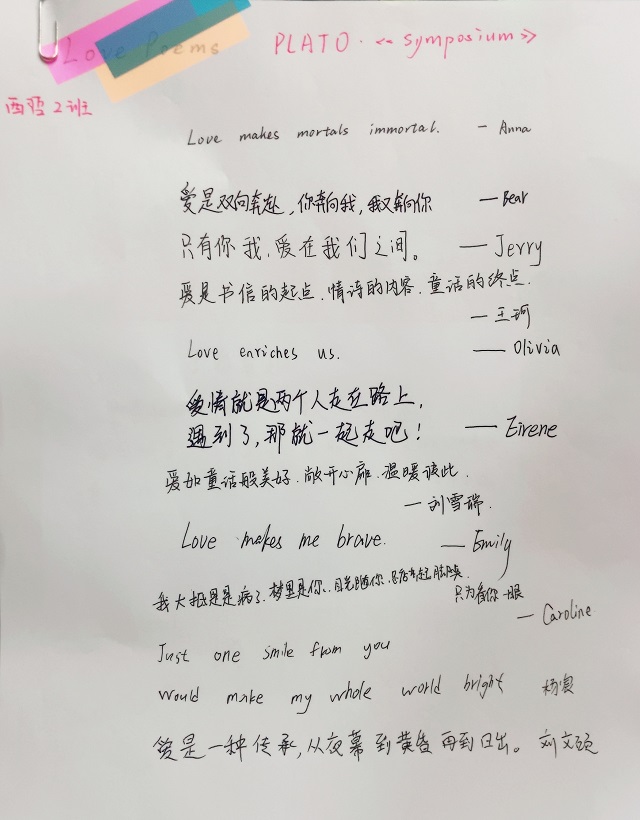 Love Poems PLATO·《Symposium》
西哲2班
Love makes mortals immortal. — Anna
爱是双向奔赴，你奔向我，我又奔向你 — Bear
只有你我，爱在我们之间。 — Jerry
爱是书信的起点、情诗的内容、童话的终点.
— 王珂
Love enriches us. — Olivia
爱情就是两个人走在路上，
遇到了，那就一起走吧！ — Eirene
爱如童话般美好、敞开心扉、温暖彼此.
— 刘雪瑞.
Love makes me brave. — Emily
我大抵是病了、梦里是你、目光随你、
只为看你一眼
— Caroline
Just one smile from you
Would make my whole world bright 杨
爱是一种传承，从夜幕到黄昏再到日出。 刘文